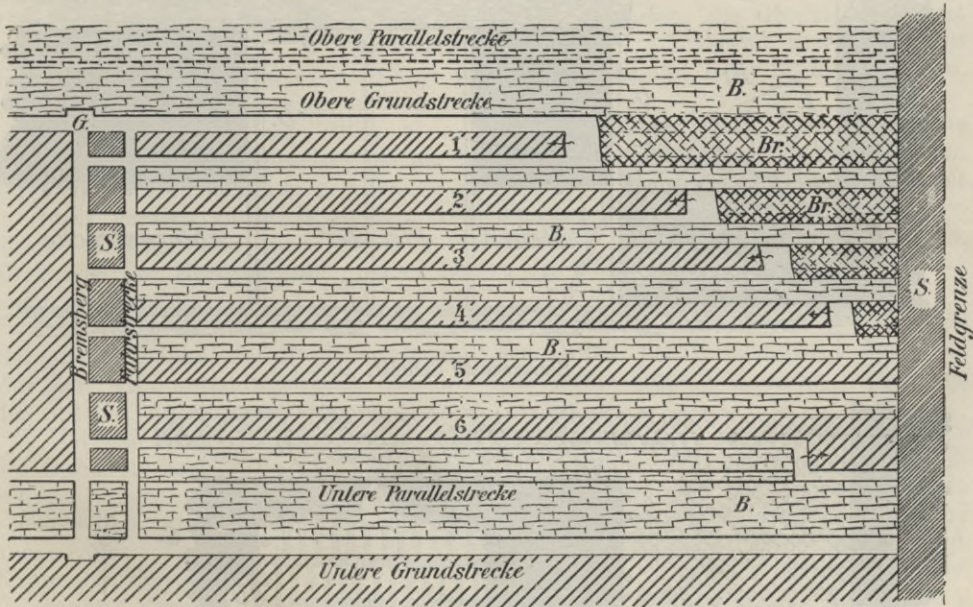 Obere Parallelstrecke
B.
Obere Grundstrecke
G.
1
Br.
2
Br.
S.
B.
3
Bremsberg
Fahrstrecke
S.
Feldgrenze
4
B.
5
S.
6
Untere Parallelstrecke
B.
Untere Grundstrecke